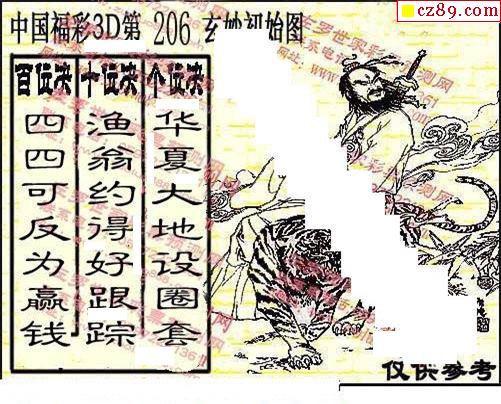 cz89.com
中国福彩3D第 206 玄妙初始图
百位决 十位决 个位决
四四可反为赢钱
渔翁约得好跟踪
华夏大地设圈套
仅供参考